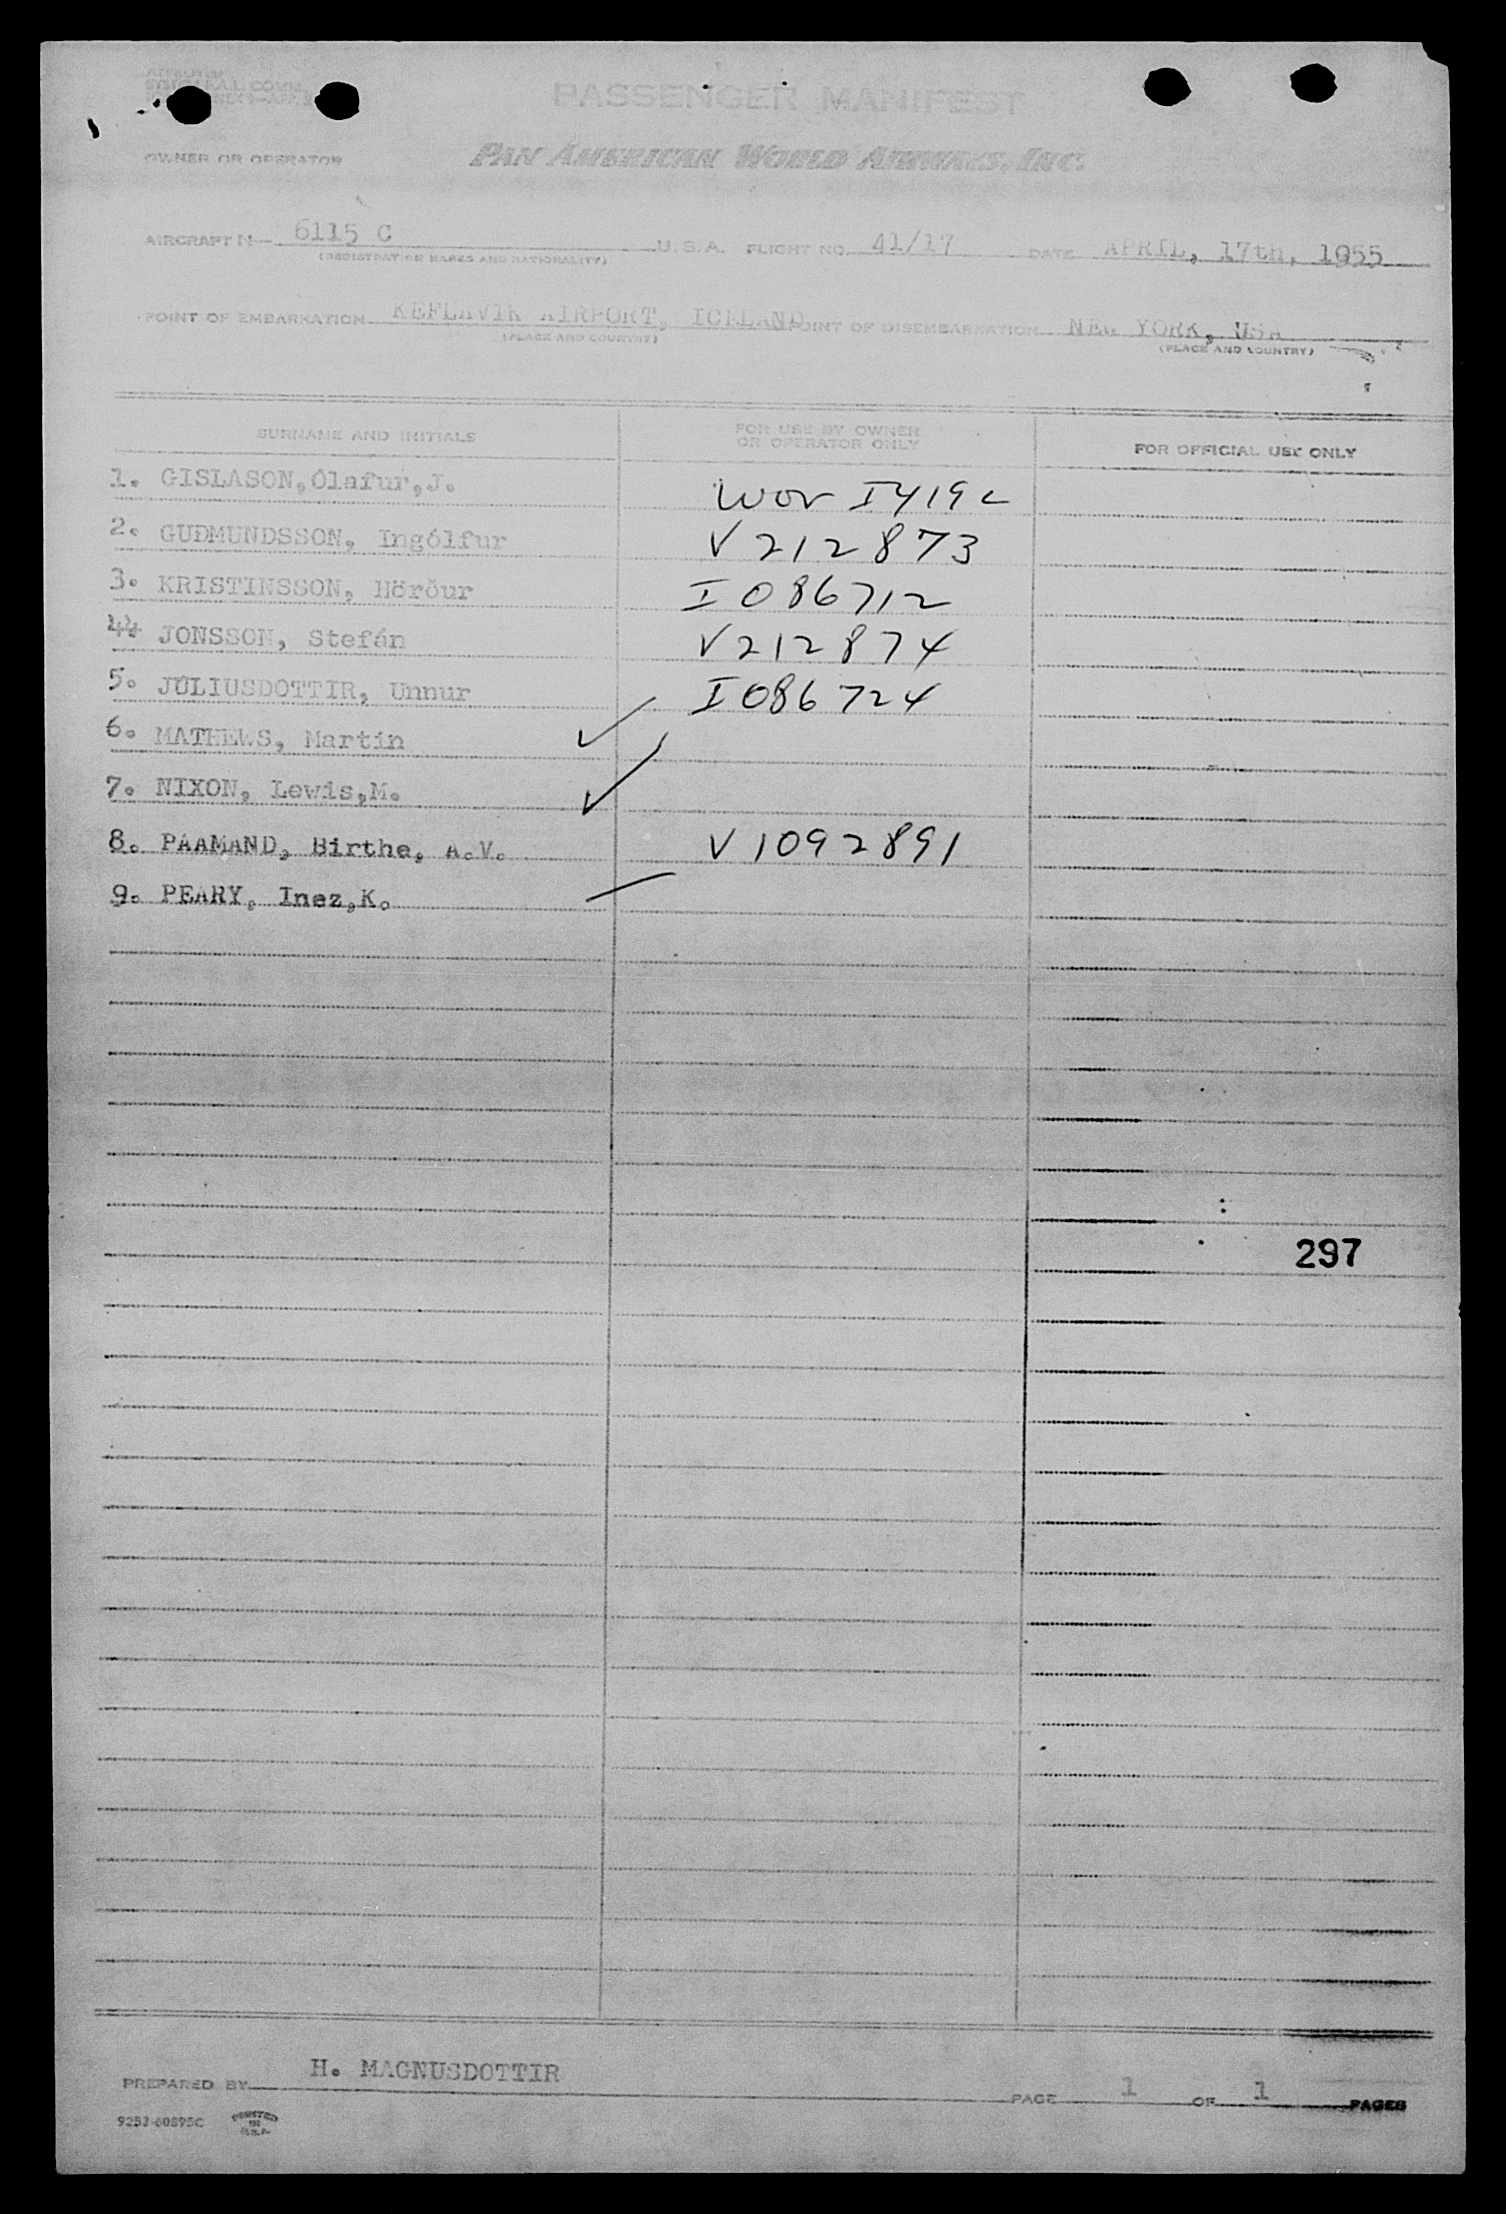 PASSENGER MANIFEST
OWNER OR OPERATOR PAN AMERICAN WORLD AIRWAYS, INC.
AIRCRAFT N 6115 C U.S.A. FLIGHT NO. 41/17 DATE APRIL, 17th, 1955
(REGISTRATION MARKS AND NATIONALITY)
POINT OF EMBARKATION KEFLAVIK AIRPORT, ICELAND POINT OF DISEMBARKATION NEW YORK, USA
(PLACE AND COUNTRY) (PLACE AND COUNTRY)
SURNAME AND INITIALS FOR USE BY OWNER OR OPERATOR ONLY FOR OFFICIAL USE ONLY
1. GISLASON, Ólafur, J. WOV I 419 c
2. GUÐMUNDSSON, Ingólfur V 212873
3. KRISTINSSON, Hörður I 086712
44 JONSSON, Stefán V 212874
5. JÚLIUSDOTTIR, Unnur I 086724
6. MATHEWS, Martin ✓
7. NIXON, Lewis,M. ✓
8. PAAMAND, Birthe, A.V. V 1092891
9. PEARY, Inez,K.
297
PREPARED BY H. MAGNUSDOTTIR PAGE 1 OF 1 PAGES
9253-60895C PRINTED IN U.S.A.